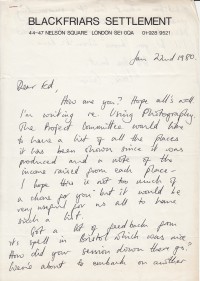 BLACKFRIARS SETTLEMENT
44-47 NELSON SQUARE LONDON SE1 0QA 01-928 9521
Jan 22nd 1980.
Dear Ed,
How are you? Hope all's well.
I'm writing re Using Photography.
The Project Committee would like
to have a list of all the places
it has been shown since it was
produced and a note of the
income raised from each place -
I hope this is not too much of
a chore for you but it would be
very useful for us all to have
such a list.
Got a lot of feedback from
it's spell in Bristol which was nice.
How did your session down there go?
We're about to embark on another